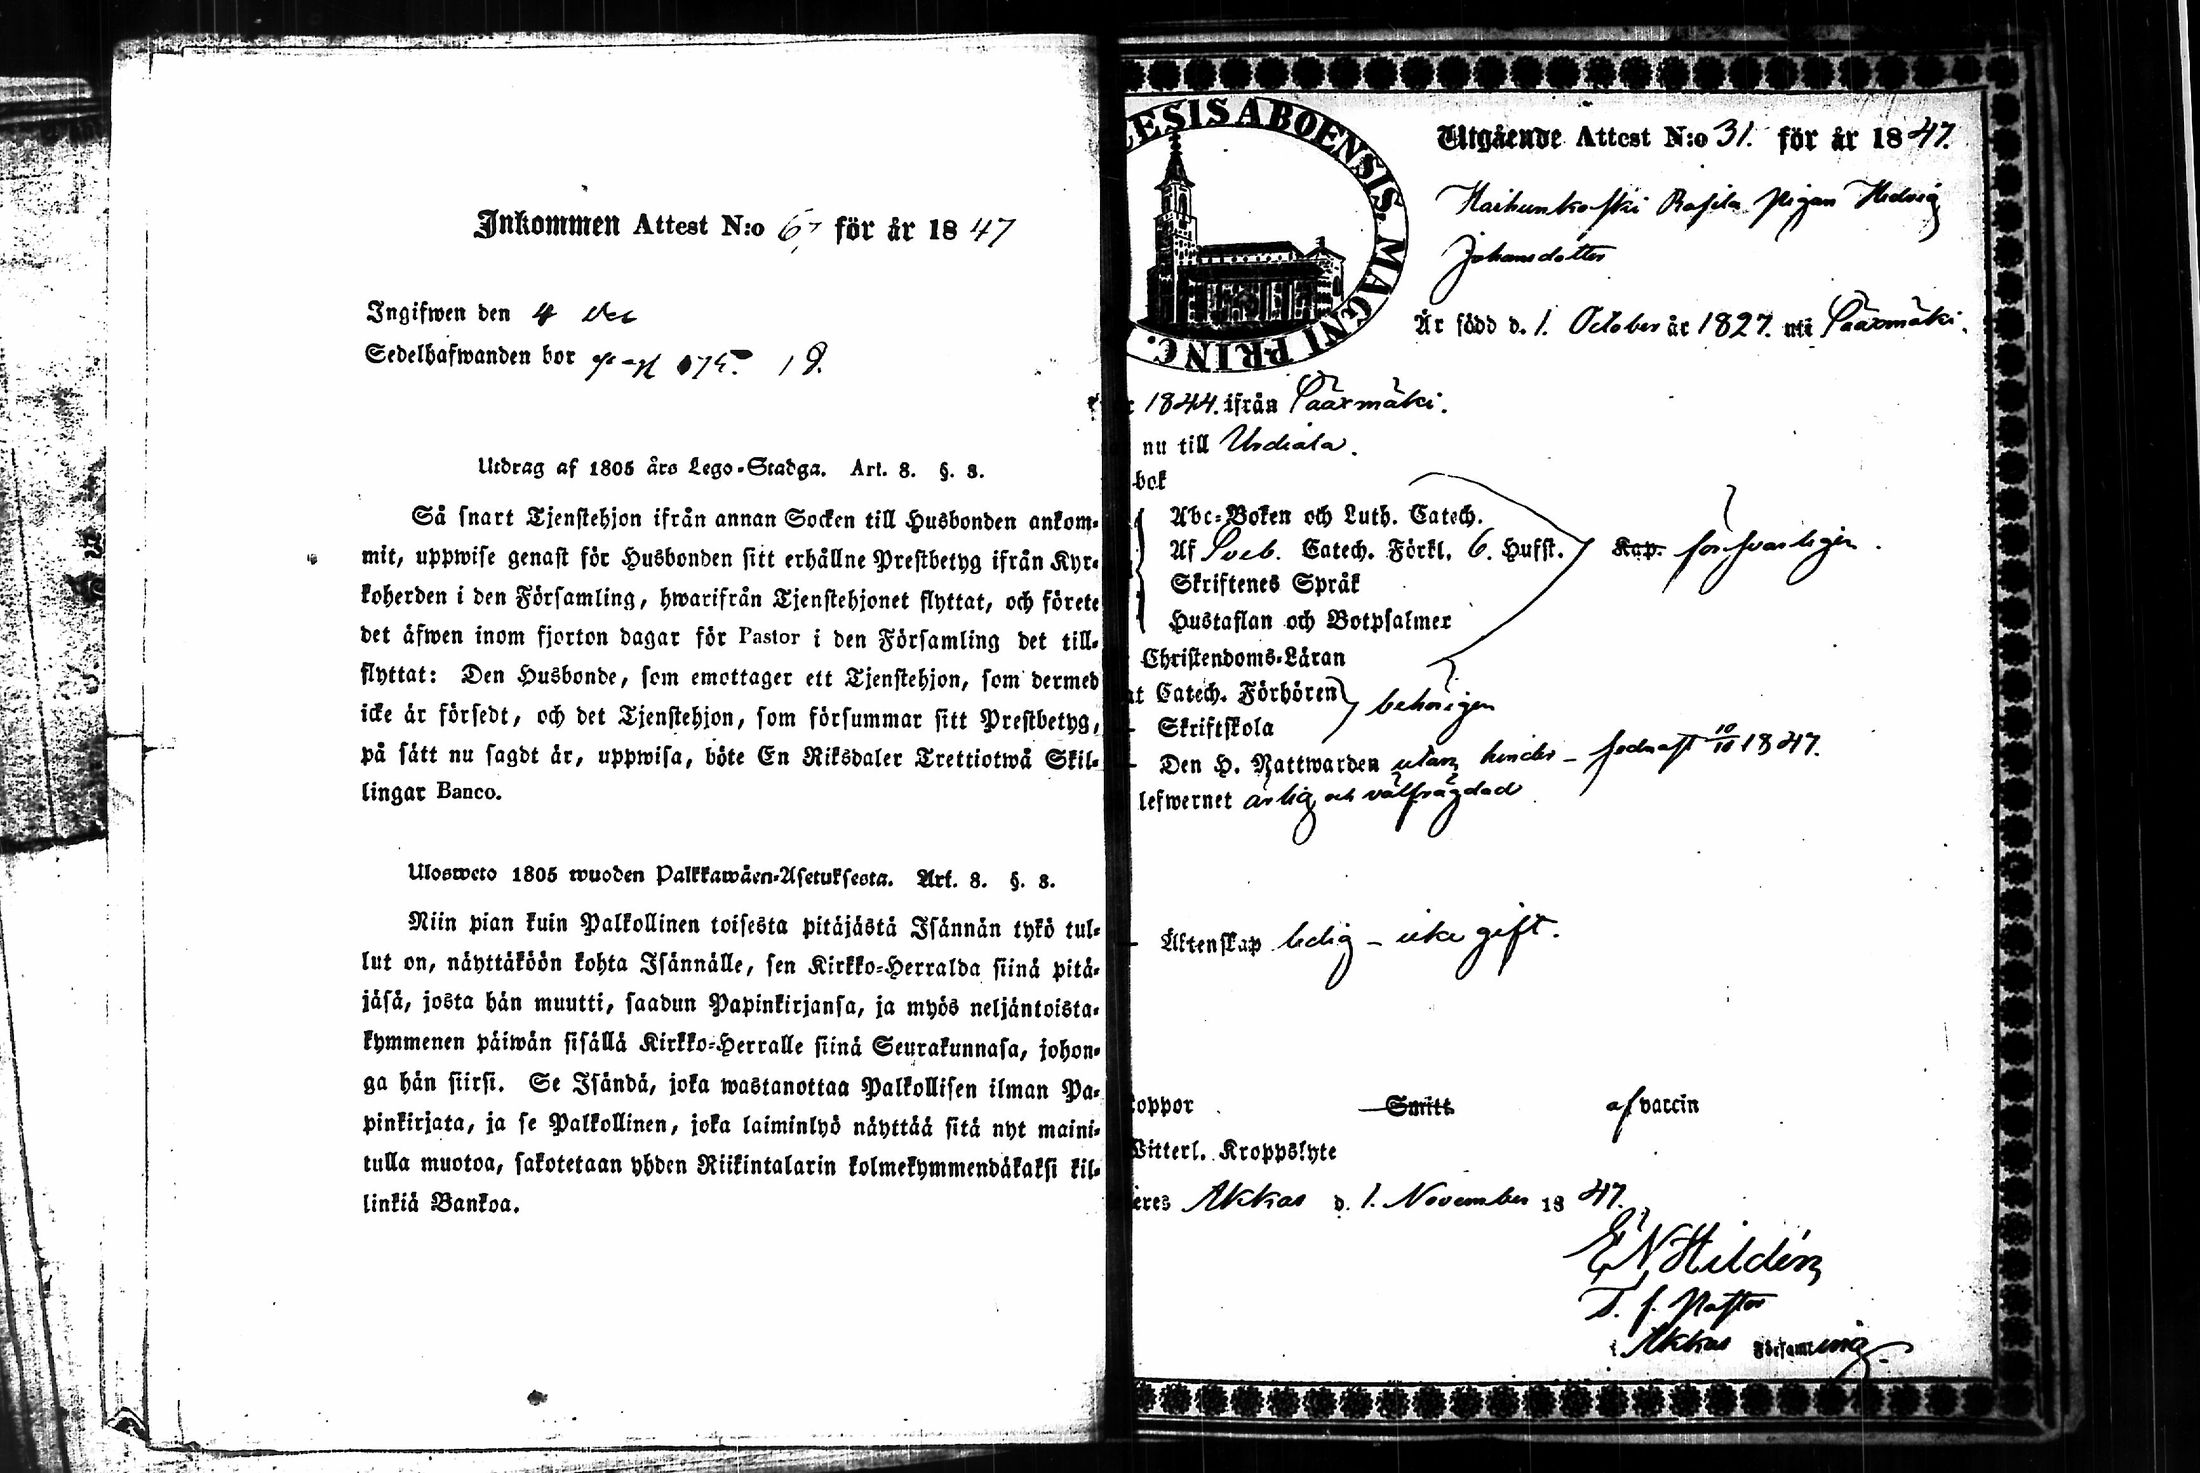 Inkommen Attest N:o 67 för år 1847
Ingifwen den 4 Dec
Sedelhafwanden bor
Utdrag af 1805 års Lego-Stadga. Art. 8. §. 8.
Så snart Tjenstehjon ifrån annan Socken till Husbonden ankom-
mit, uppwise genast för Husbonden sitt erhållne Prestbetyg ifrån Kyr-
koherden i den Församling, hwarifrån Tjenstehjonet flyttat, och förete
det äfwen inom fjorton dagar för Pastor i den Församling det till-
flyttat: Den Husbonde, som emottager ett Tjenstehjon, som dermed
icke är försedt, och det Tjenstehjon, som försummar sitt Prestbetyg,
på sätt nu sagdt är, uppwisa, böte En Riksdaler Trettiotwå Skil-
lingar Banco.
Ulosweto 1805 wuoden Palkkawäen-Asetuksesta. Art. 8. §. 8.
Niin pian kuin Palkollinen toisesta pitäjästä Isännän tykö tul-
lut on, näyttäköön kohta Isännälle, sen Kirkko-Herralda siinä pitä-
jäsä, josta hän muutti, saadun Papinkirjansa, ja myös neljäntoista-
kymmenen päiwän sisällä Kirkko-Herralle siinä Seurakunnasa, johon-
ga hän siirsi. Se Isändä, joka wastanottaa Palkollisen ilman Pa-
pinkirjata, ja se Palkollinen, joka laiminlyö näyttää sitä nyt maini-
tulla muotoa, sakotetaan yhden Riikintalarin kolmekymmendäkaksi kil-
linkiä Bankoa.
ESIS ABOENSIS. MAGNI PRINC.
Utgående Attest N:o 31. för år 1847.
Kaihunkoski Rasila Pigan Hedvig
Johansdotter
Är född d. 1. October år 1827. uti Sääxmäki.
1844. ifrån Sääxmäki.
nu till Urdiala.
bok
Abc-Boken och Luth. Catech.
Af Sveb. Catech. Förkl. 6. Hufst. Kap. försvarligen.
Skriftenes Språk
Hustaflan och Botpsalmer
Christendoms-Läran
at Catech. Förhören behörigen
Skriftskola
Den H. Nattwarden utan hinder – sednast 10/10 1847.
lefwernet ärlig och välfrägdad
Äktenskap ledig – icke gift.
koppor Smitt af vaccin
Witterl. Kroppslyte
eres Akkas d. 1. November 1847.
E N Hildén
T. f. Pastor
i Akkas Församling.